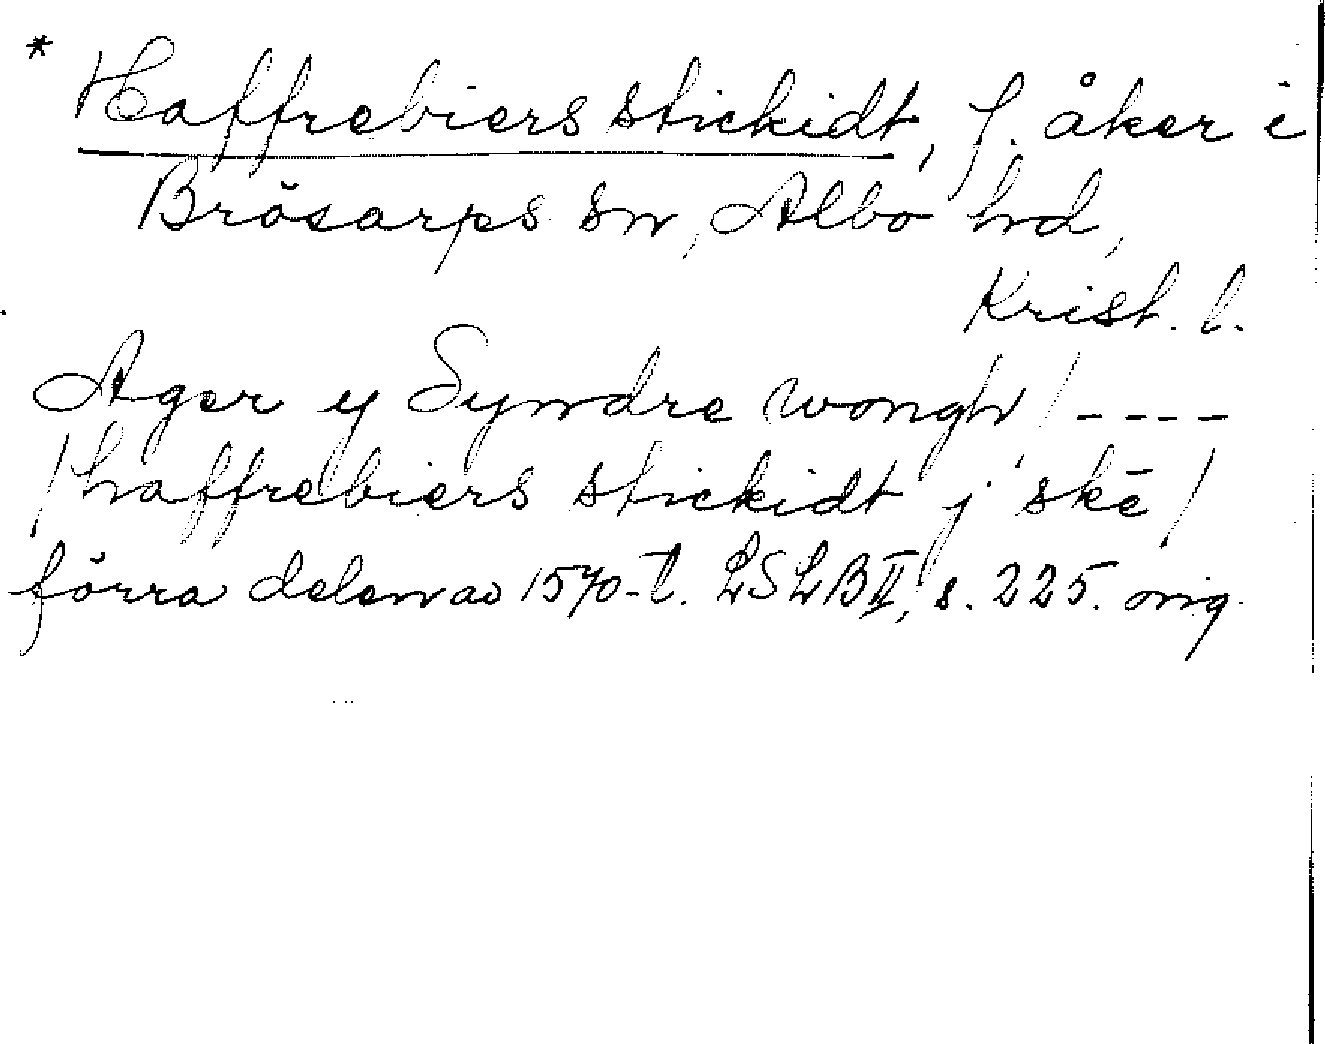 * Haffrebiers stickidt, f. åker i
Brösarps sn, Albo hd,
Krist. l.
Ager y Syndre wongh / - - - -
/ haffrebiers stickidt j skē /
förra delen av 1570-t. LSLB II, s. 225. orig.